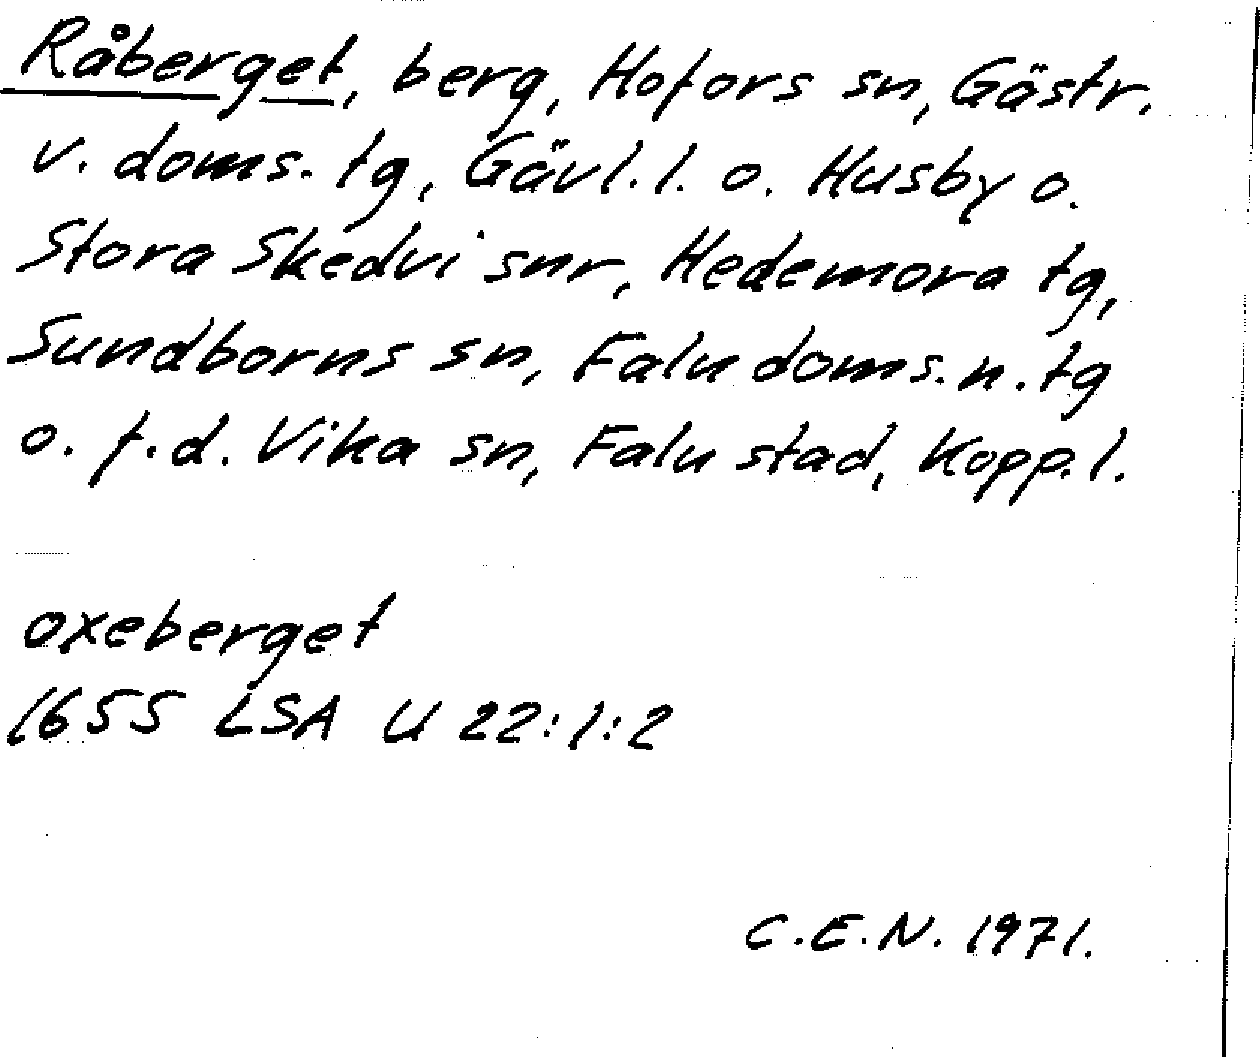 Råberget, berg, Hofors sn, Gästr.
v. doms. tg, Gävl. l. o. Husby o.
Stora Skedvi snr, Hedemora tg,
Sundborns sn, Falu doms. n. tg
o. f.d. Vika sn, Falu stad, Kopp. l.
oxeberget
1655 LSA U 22:1:2
C.E.N. 1971.